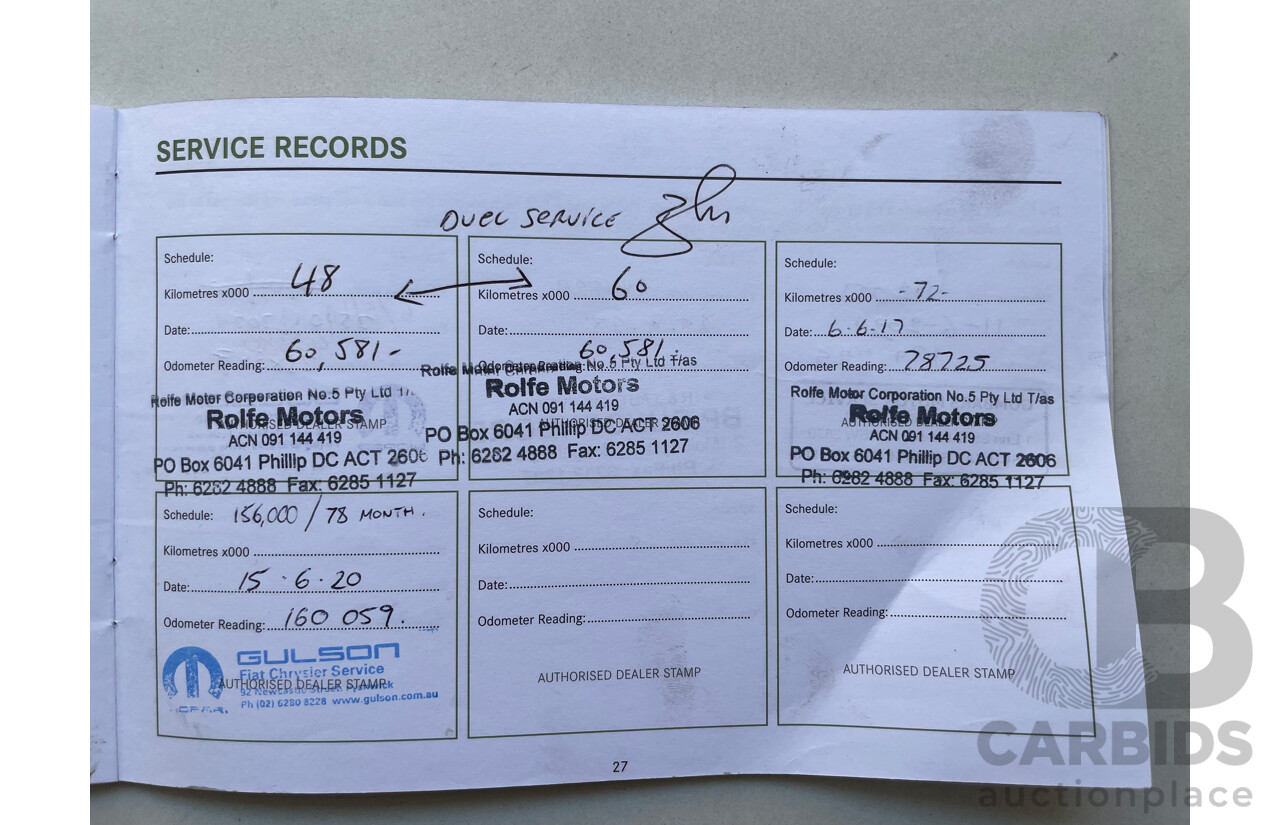 SERVICE RECORDS
DUEL SERVICE
Schedule:
Kilometres x000 48
Date:
Odometer Reading: 60,581-
Rolfe Motor Corporation No.5 Pty Ltd T/
Rolfe Motors
AUTHORISED DEALER STAMP
ACN 091 144 419
PO Box 6041 Phillip DC ACT 2606
Ph: 6282 4888 Fax: 6285 1127
Schedule:
Kilometres x000 60
Date:
Odometer Reading: 60,581.
Rolfe Motor Corporation No.5 Pty Ltd T/as
Rolfe Motors
ACN 091 144 419
AUTHORISED DEALER STAMP
PO Box 6041 Phillip DC ACT 2606
Ph: 6282 4888 Fax: 6285 1127
Schedule:
Kilometres x000 -72-
Date: 6.6.17
Odometer Reading: 78725
Rolfe Motor Corporation No.5 Pty Ltd T/as
Rolfe Motors
AUTHORISED DEALER STAMP
ACN 091 144 419
PO Box 6041 Phillip DC ACT 2606
Ph: 6282 4888 Fax: 6285 1127
Schedule: 156,000 / 78 MONTH.
Kilometres x000
Date: 15.6.20
Odometer Reading: 160 059.
GULSON
Fiat Chrysler Service
AUTHORISED DEALER STAMP
92 Newcastle Street Fyshwick
Ph (02) 6280 8228 www.gulson.com.au
Schedule:
Kilometres x000
Date:
Odometer Reading:
AUTHORISED DEALER STAMP
Schedule:
Kilometres x000
Date:
Odometer Reading:
AUTHORISED DEALER STAMP
27
CB
CARBIDS
auctionplace